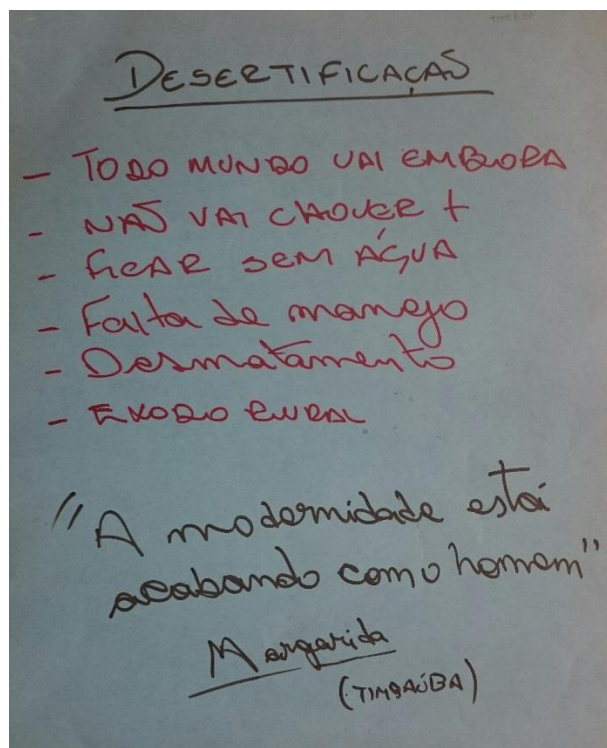 DESERTIFICAÇÃO
- TODO MUNDO VAI EMBORA
- NÃO VAI CHOVER +
- FICAR SEM ÁGUA
- Falta de manejo
- Desmatamento
- EXODO RURAL
"A modernidade está
acabando com o homem"
Margarida
(TIMBAÚBA)